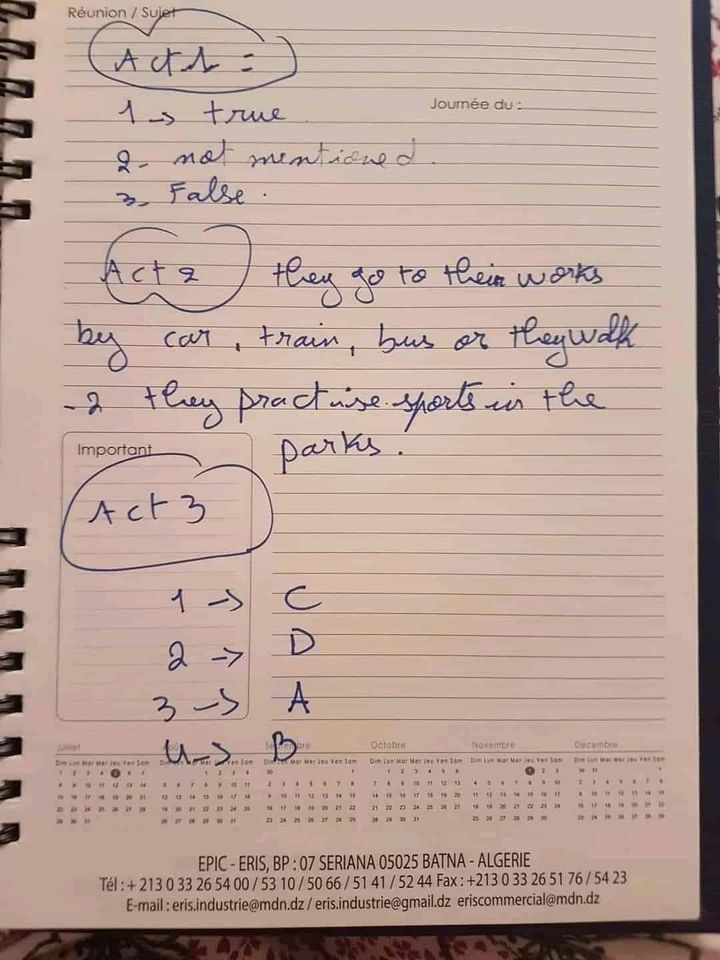 Réunion / Sujet
Act 1 =
1 → true
Journée du :
2- not mentioned.
3- False.
Act 2 they go to their works
by car, train, bus or they walk
-2 they practise sports in the
parks.
Important
Act 3
1 → C
2 → D
3 → A
4 → B
Juillet Août Septembre Octobre Novembre Decembre
Dim Lun Mar Mer Jeu Ven Sam
EPIC - ERIS, BP : 07 SERIANA 05025 BATNA - ALGERIE
Tél : + 213 0 33 26 54 00 / 53 10 / 50 66 / 51 41 / 52 44 Fax : +213 0 33 26 51 76 / 54 23
E-mail : eris.industrie@mdn.dz / eris.industrie@gmail.dz eriscommercial@mdn.dz